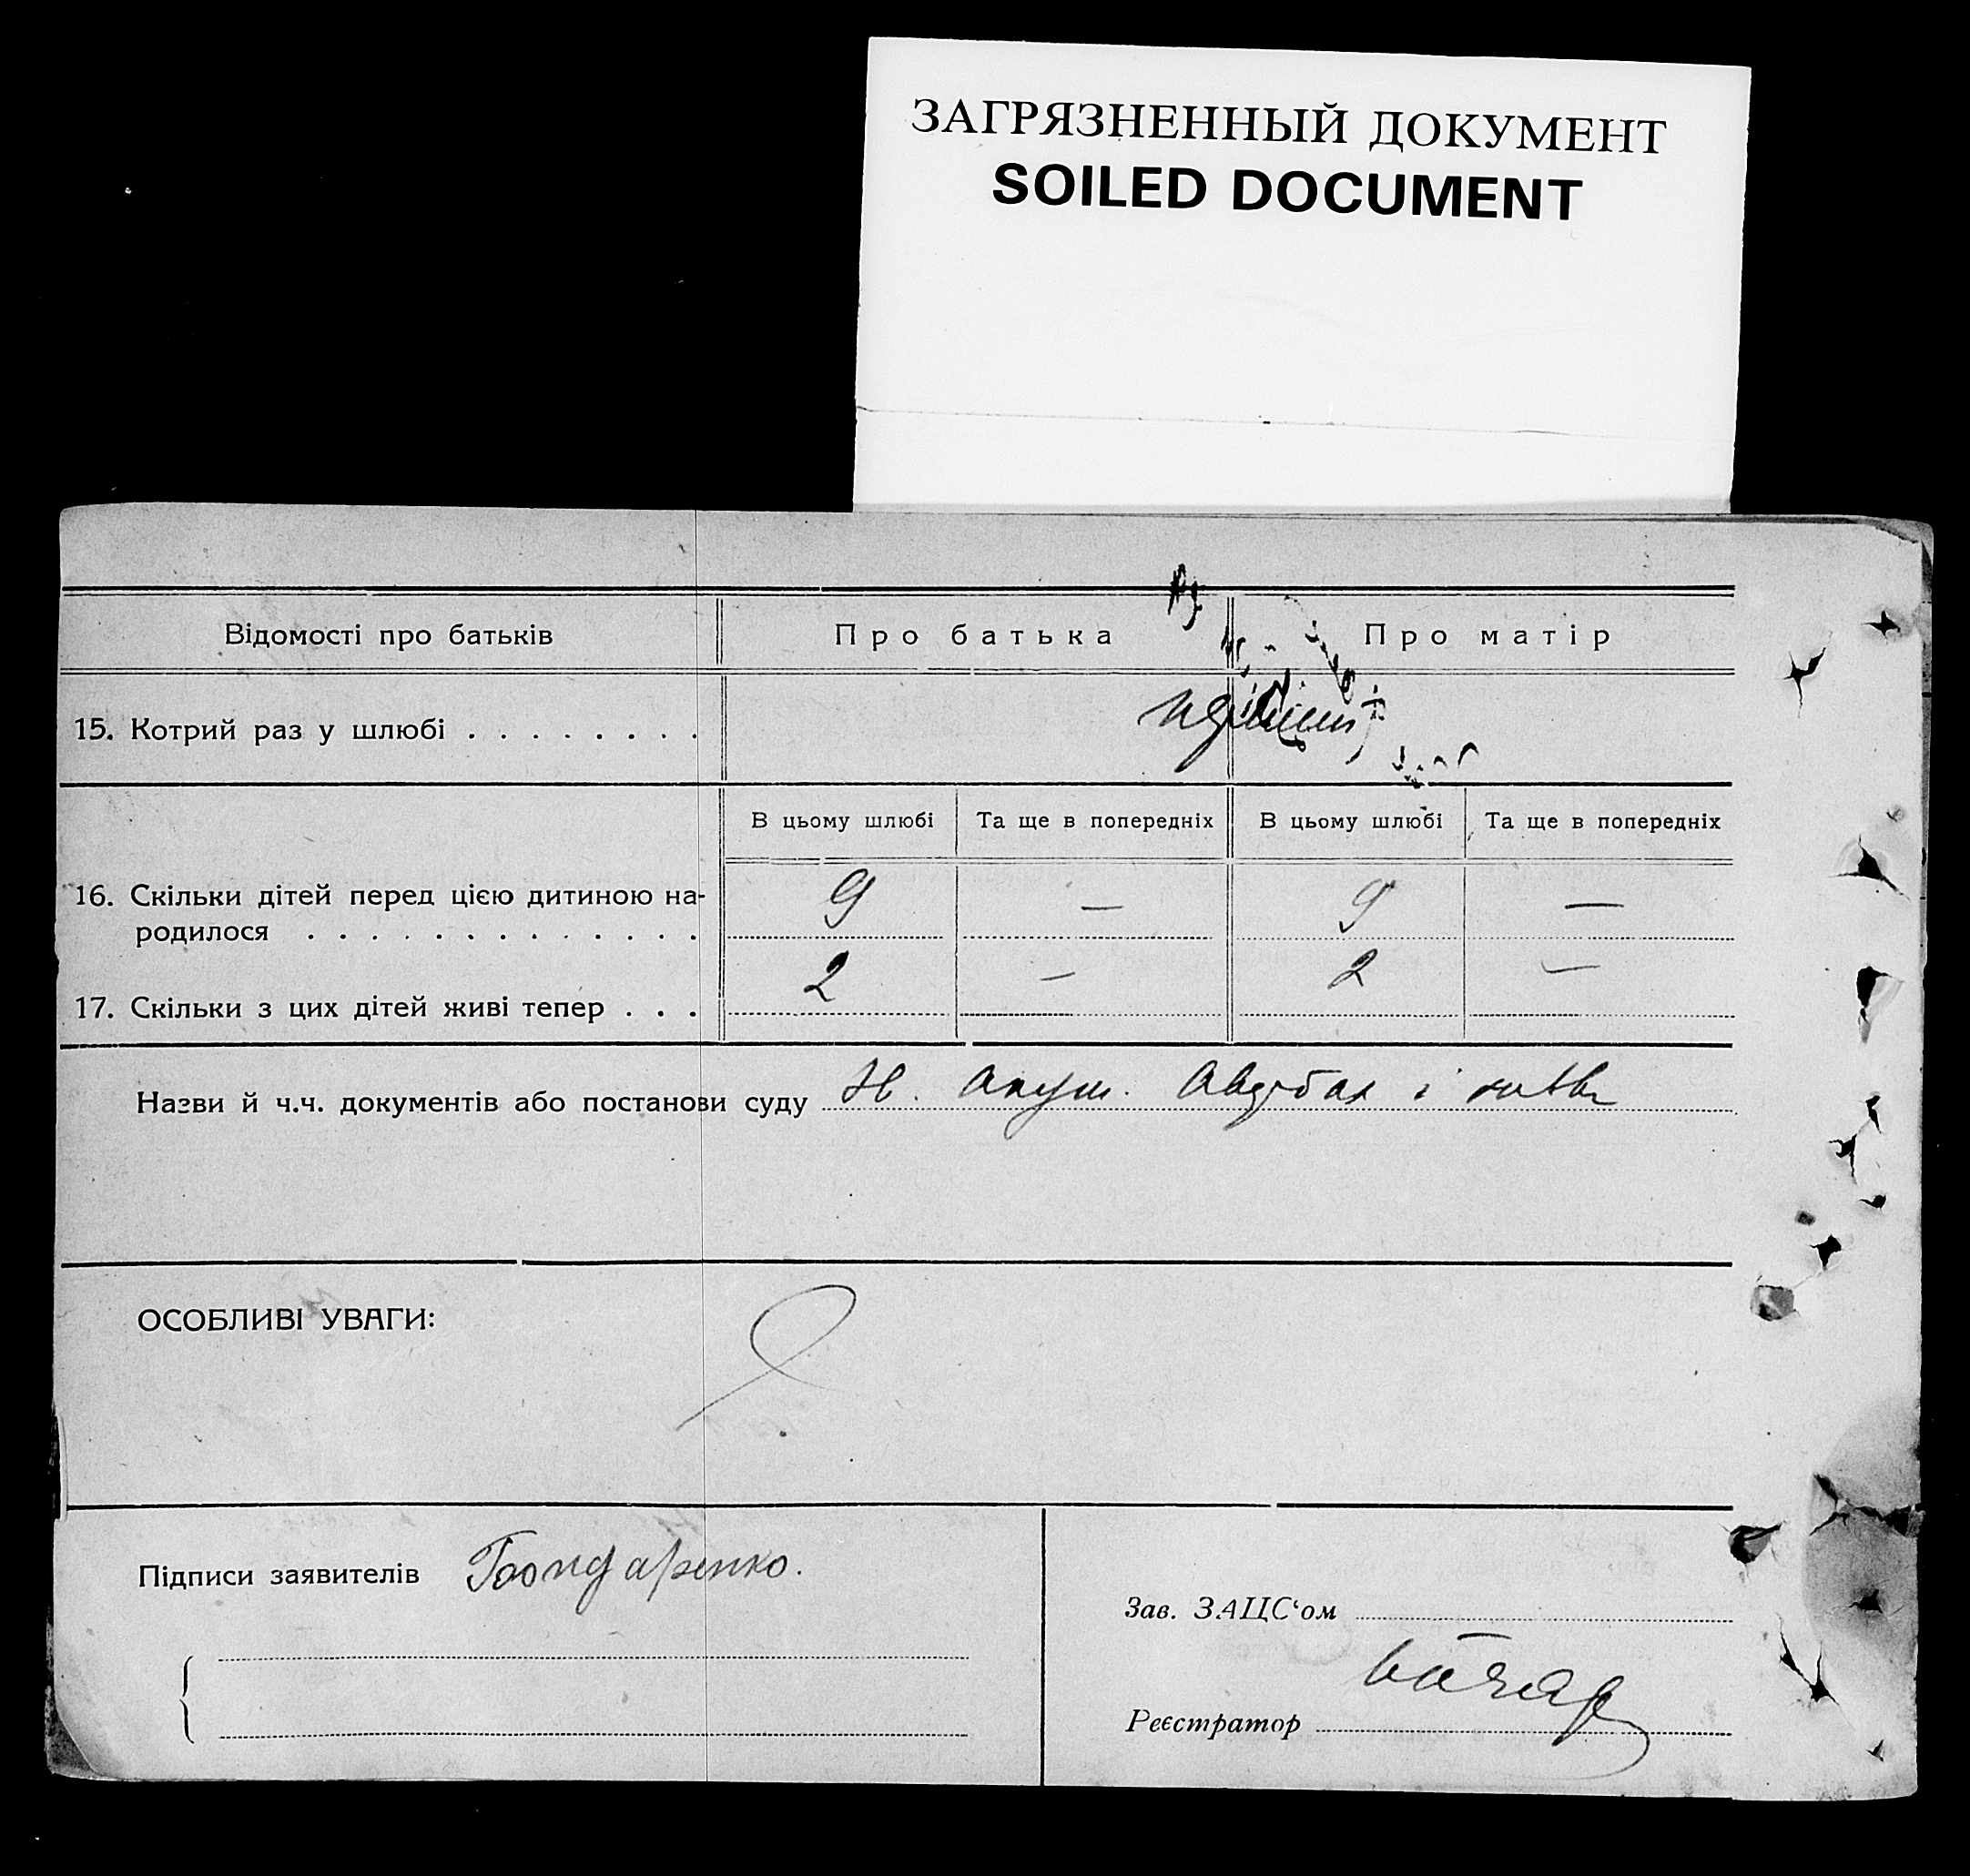 ЗАГРЯЗНЕННЫЙ ДОКУМЕНТ
SOILED DOCUMENT
Відомості про батьків Про батька Про матір
15. Котрий раз у шлюбі . . . . . . . .
В цьому шлюбі Та ще в попередніх В цьому шлюбі Та ще в попередніх
16. Скільки дітей перед цією дитиною на-
родилося . . . . . . . . . . . . . 9 — 9 —
17. Скільки з цих дітей живі тепер . . . 2 — 2 —
Назви й ч.ч. документів або постанови суду
ОСОБЛИВІ УВАГИ:
Підписи заявителів Бондаренко.
Зав. ЗАЦС‘ом
Реєстратор